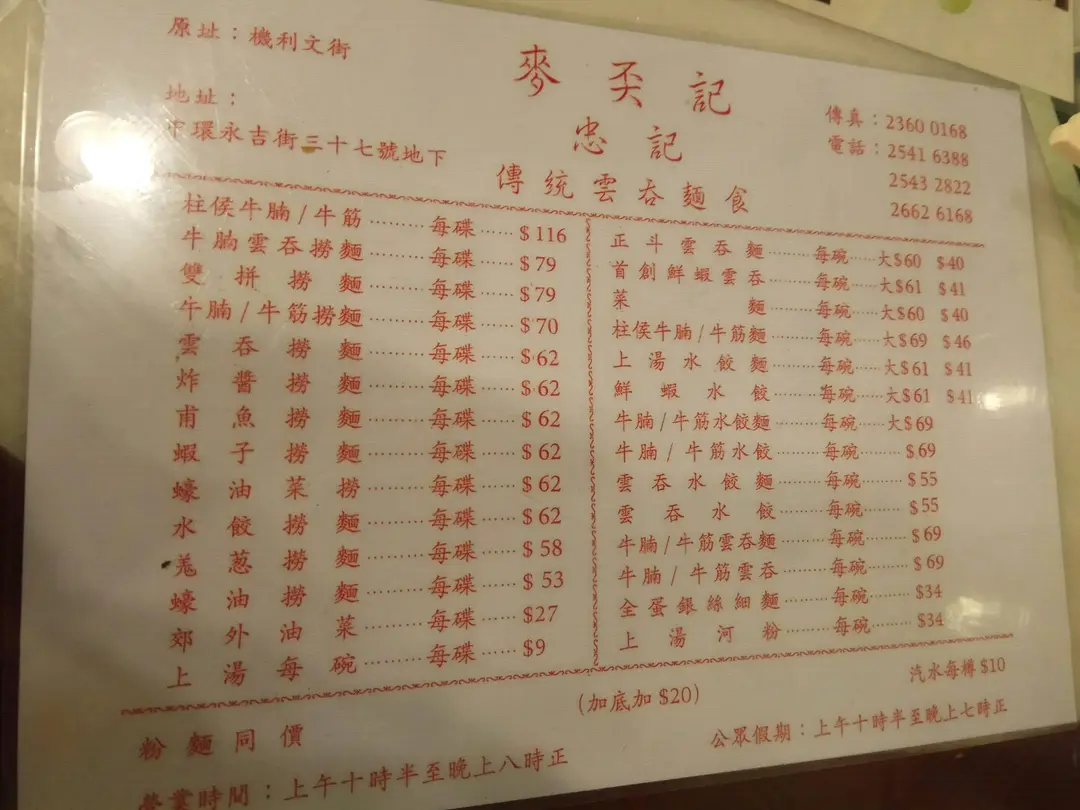 原址：機利文街
地址：
中環永吉街三十七號地下
麥奀記
忠記
傳統雲吞麵食
傳真：2360 0168
電話：2541 6388
2543 2822
2662 6168
柱侯牛腩/牛筋……每碟……$116
牛腩雲吞撈麵……每碟……$79
雙拼撈麵……每碟……$79
牛腩/牛筋撈麵……每碟……$70
雲吞撈麵……每碟……$62
炸醬撈麵……每碟……$62
甫魚撈麵……每碟……$62
蝦子撈麵……每碟……$62
蠔油菜撈……每碟……$62
水餃撈麵……每碟……$62
羗葱撈麵……每碟……$58
蠔油撈麵……每碟……$53
郊外油菜……每碟……$27
上湯每碗……每碟……$9
正斗雲吞麵……每碗……大$60 $40
首創鮮蝦雲吞……每碗……大$61 $41
菜麵……每碗……大$60 $40
柱侯牛腩/牛筋麵……每碗……大$69 $46
上湯水餃麵……每碗……大$61 $41
鮮蝦水餃……每碗……大$61 $41
牛腩/牛筋水餃麵……每碗……大$69
牛腩/牛筋水餃……每碗……$69
雲吞水餃麵……每碗……$55
雲吞水餃……每碗……$55
牛腩/牛筋雲吞麵……每碗……$69
牛腩/牛筋雲吞……每碗……$69
全蛋銀絲細麵……每碗……$34
上湯河粉……每碗……$34
(加底加 $20)
汽水每樽 $10
粉麵同價
營業時間：上午十時半至晚上八時正
公眾假期：上午十時半至晚上七時正